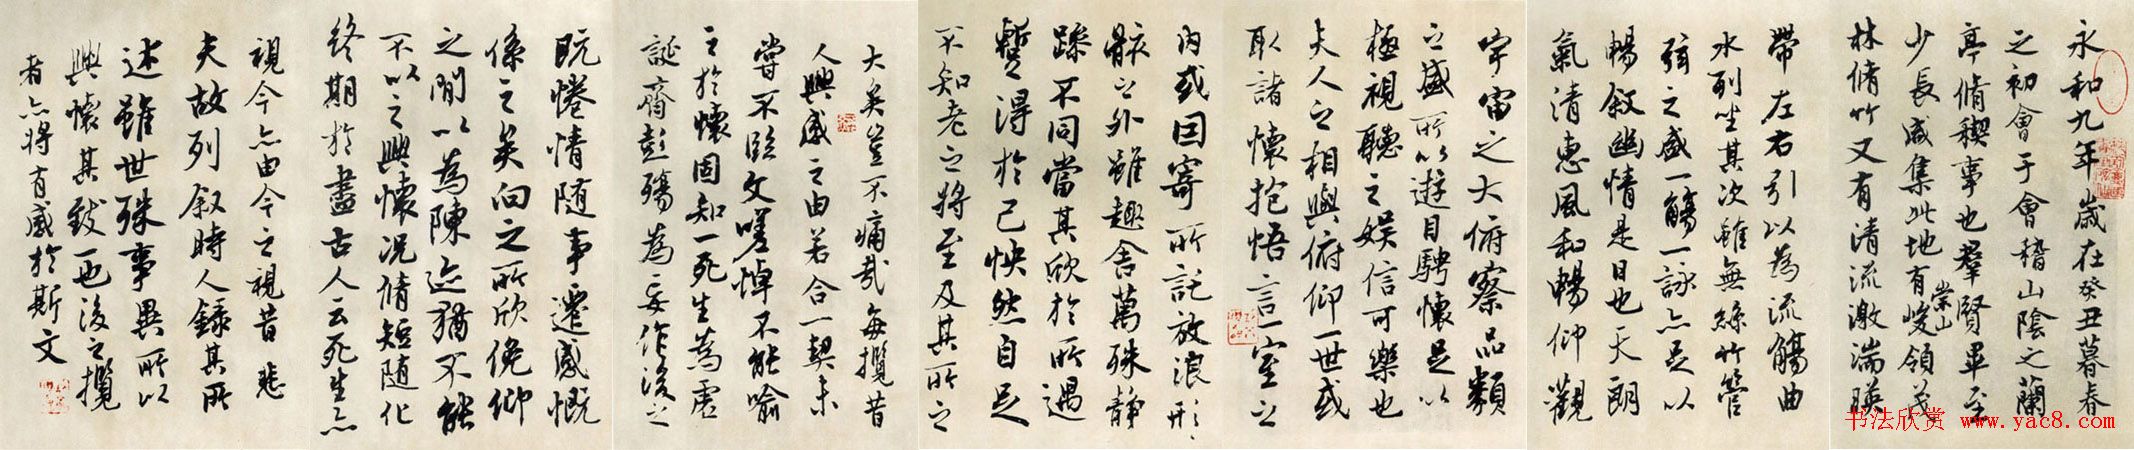 永和九年歲在癸丑暮春
之初會于會稽山陰之蘭
亭脩稧事也羣賢畢至
少長咸集此地有
崇山
峻領茂
林脩竹又有清流激湍暎
帶左右引以為流觴曲
水列坐其次雖無絲竹管
弦之盛一觴一詠亦足以
暢敘幽情是日也天朗
氣清惠風和暢仰觀
宇宙之大俯察品類
之盛所以遊目騁懷足以
極視聽之娛信可樂也
夫人之相與俯仰一世或
取諸懷抱悟言一室之
內或因寄所託放浪形
骸之外雖趣舍萬殊靜
躁不同當其欣於所遇
暫得於己怏然自足
不知老之將至及其所之
既惓情隨事遷感慨
係之矣向之所欣俛仰
之間以為陳迹猶不能
不以之興懷況脩短隨化
終期於盡古人云死生亦
大矣豈不痛哉每攬昔
人興感之由若合一契未
嘗不臨文嗟悼不能喻
之於懷固知一死生為虛
誕齊彭殤為妄作後之
視今亦由今之視昔悲
夫故列敘時人錄其所
述雖世殊事異所以
興懷其致一也後之攬
者亦將有感於斯文
书法欣赏 www.yac8.com